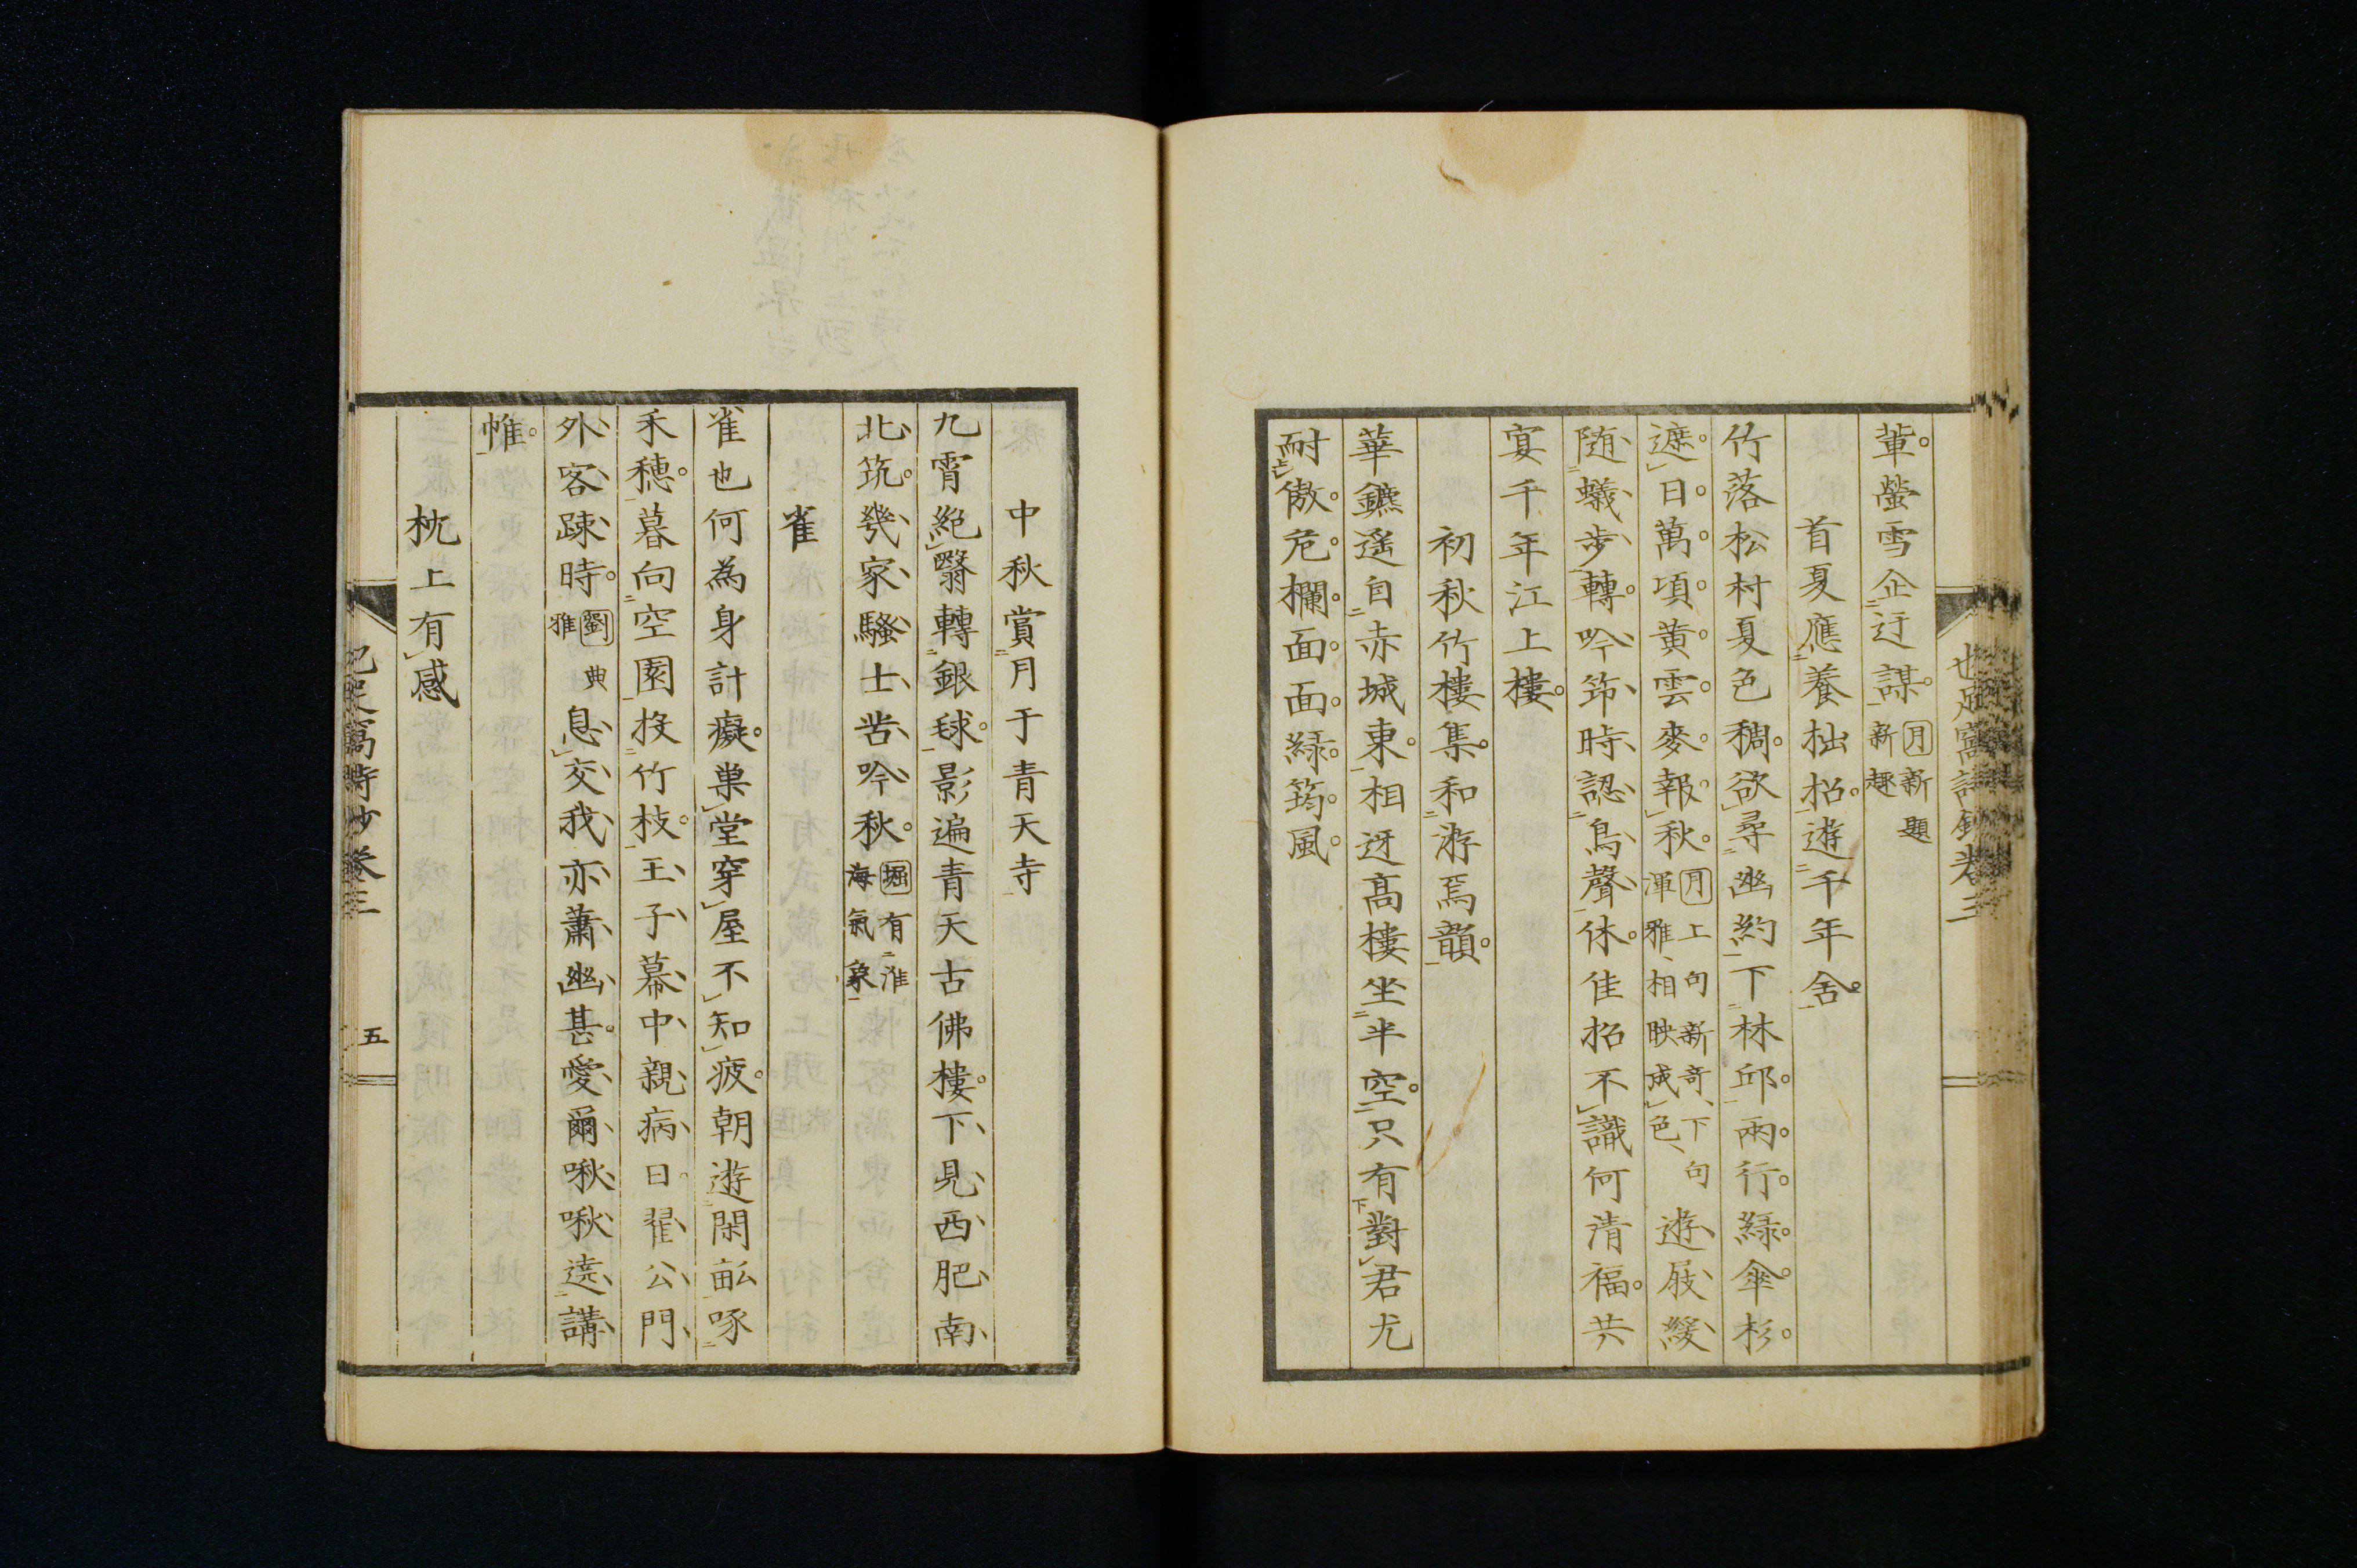 也足窩詩鈔卷三
輩螢雪企迂謀 月新題新趣
首夏應養拙招遊千年舍
竹落松村夏色稠欲尋幽約下林邱兩行綠傘杉
遮日萬頃黄雲麥報秋 月上句新奇、下句渾雅、相映成色、 遊屐緩
随蟻步轉吟筇時認鳥聲休佳招不識何清福共
宴千年江上樓
初秋竹樓集和游焉韻
華鑣遥自赤城東相迓髙樓坐半空只有對君尤
耐傲危欄面面綠筠風
中秋賞月于青天寺
九霄絶翳轉銀毬影遍青天古佛樓下見西肥南
北筑幾家騷士苦吟秋 堀有淮海氣象
雀
雀也何為身計癡巢堂穿屋不知疲朝遊閑畝啄
禾穗暮向空園投竹枝王子幕中親病日翟公門
外客疎時 劉典雅 息交我亦蕭幽甚愛爾啾啾遶講
帷
枕上有感
也足窩詩鈔卷三
五